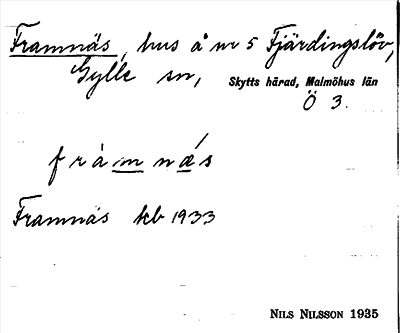 Framnäs, hus å nr 5 Fjärdingslöv,
Gylle sn, Skytts härad, Malmöhus län
Ö 3.
fràmnæ´s
Framnäs kb 1933
NILS NILSSON 1935